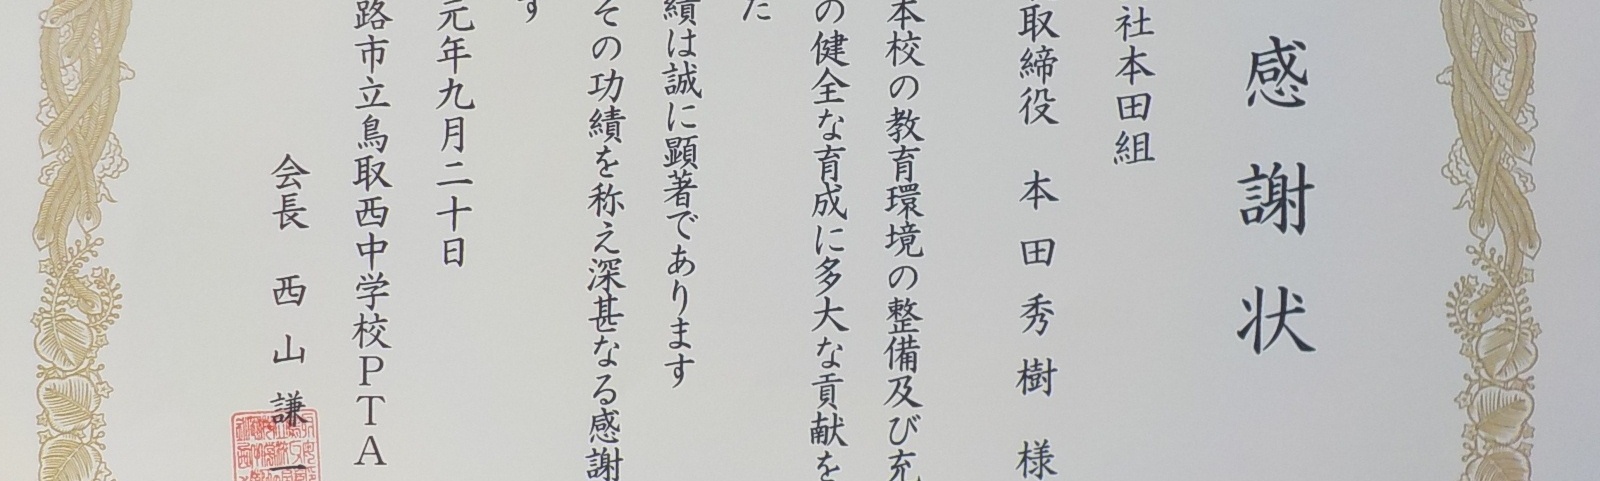 感謝状
社本田組
取締役 本田秀樹 様
本校の教育環境の整備及び充
の健全な育成に多大な貢献を
た
績は誠に顕著であります
その功績を称え深甚なる感謝
す
元年九月二十日
路市立鳥取西中学校PTA
会長 西山謙一